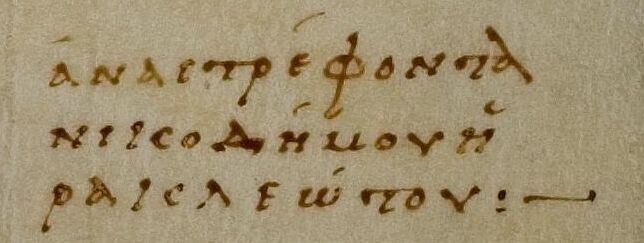 ἀναστρέφοντα
νικοδήμου ἡ
ρακλεώτου :—